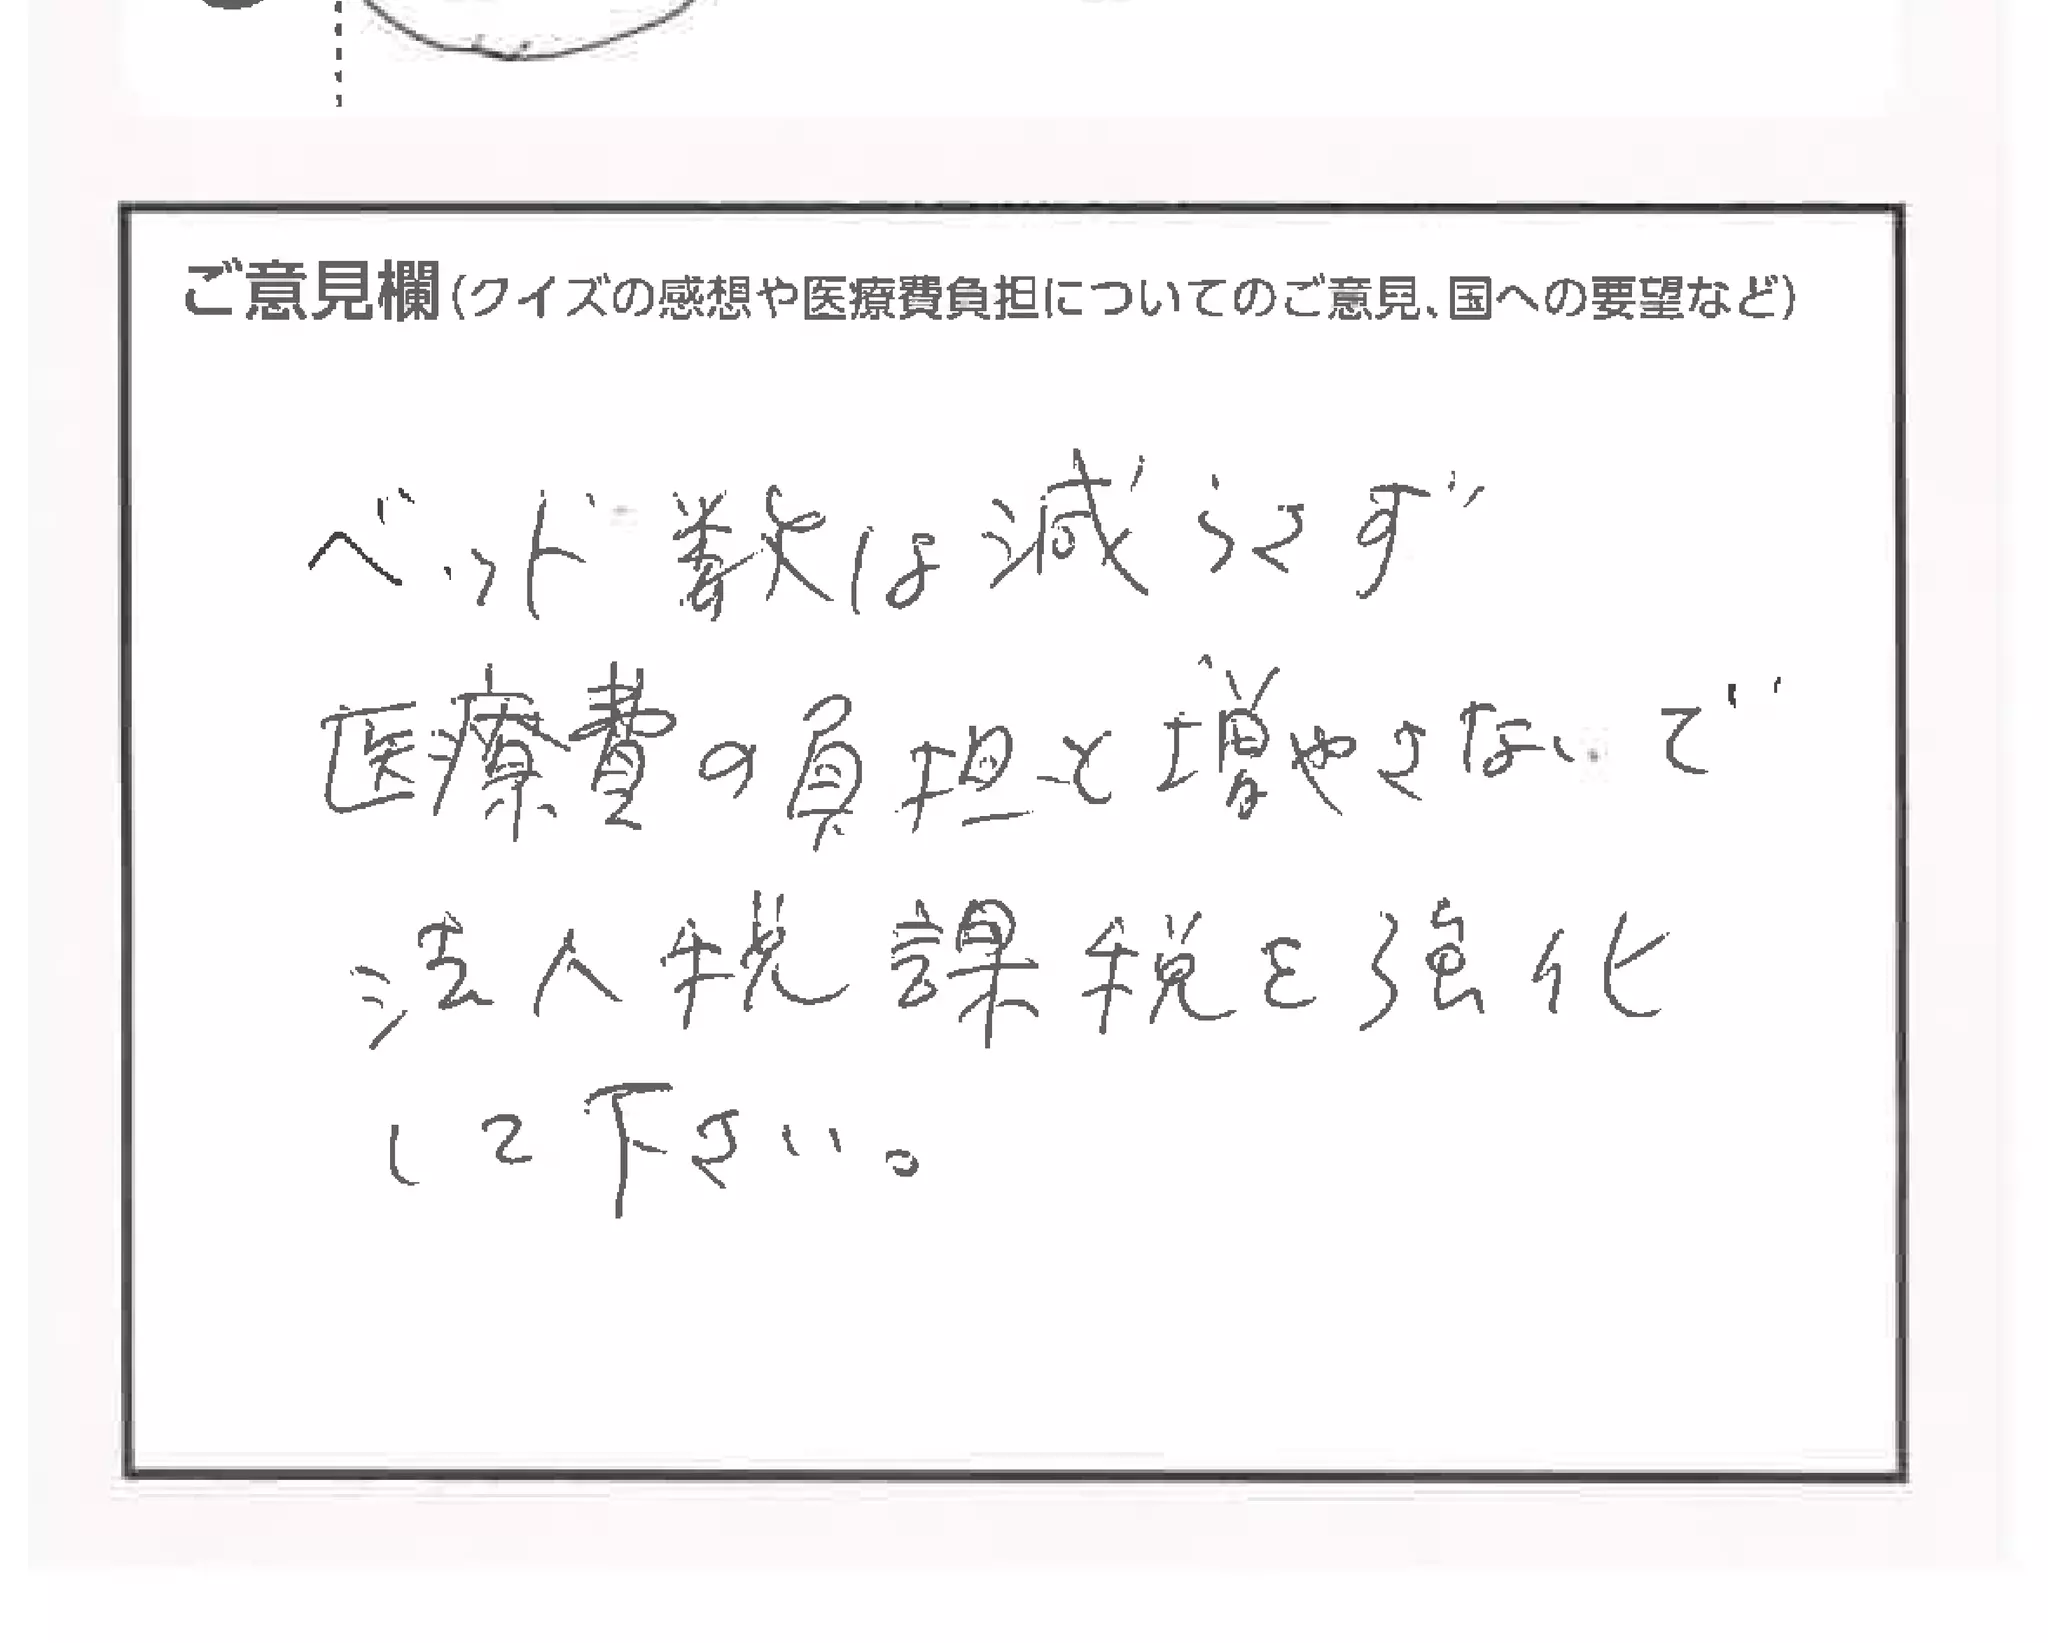 ご意見欄(クイズの感想や医療費負担についてのご意見、国への要望など)
ベッド数は減らさず
医療費の負担を増やさないで
法人税課税を強化
して下さい。